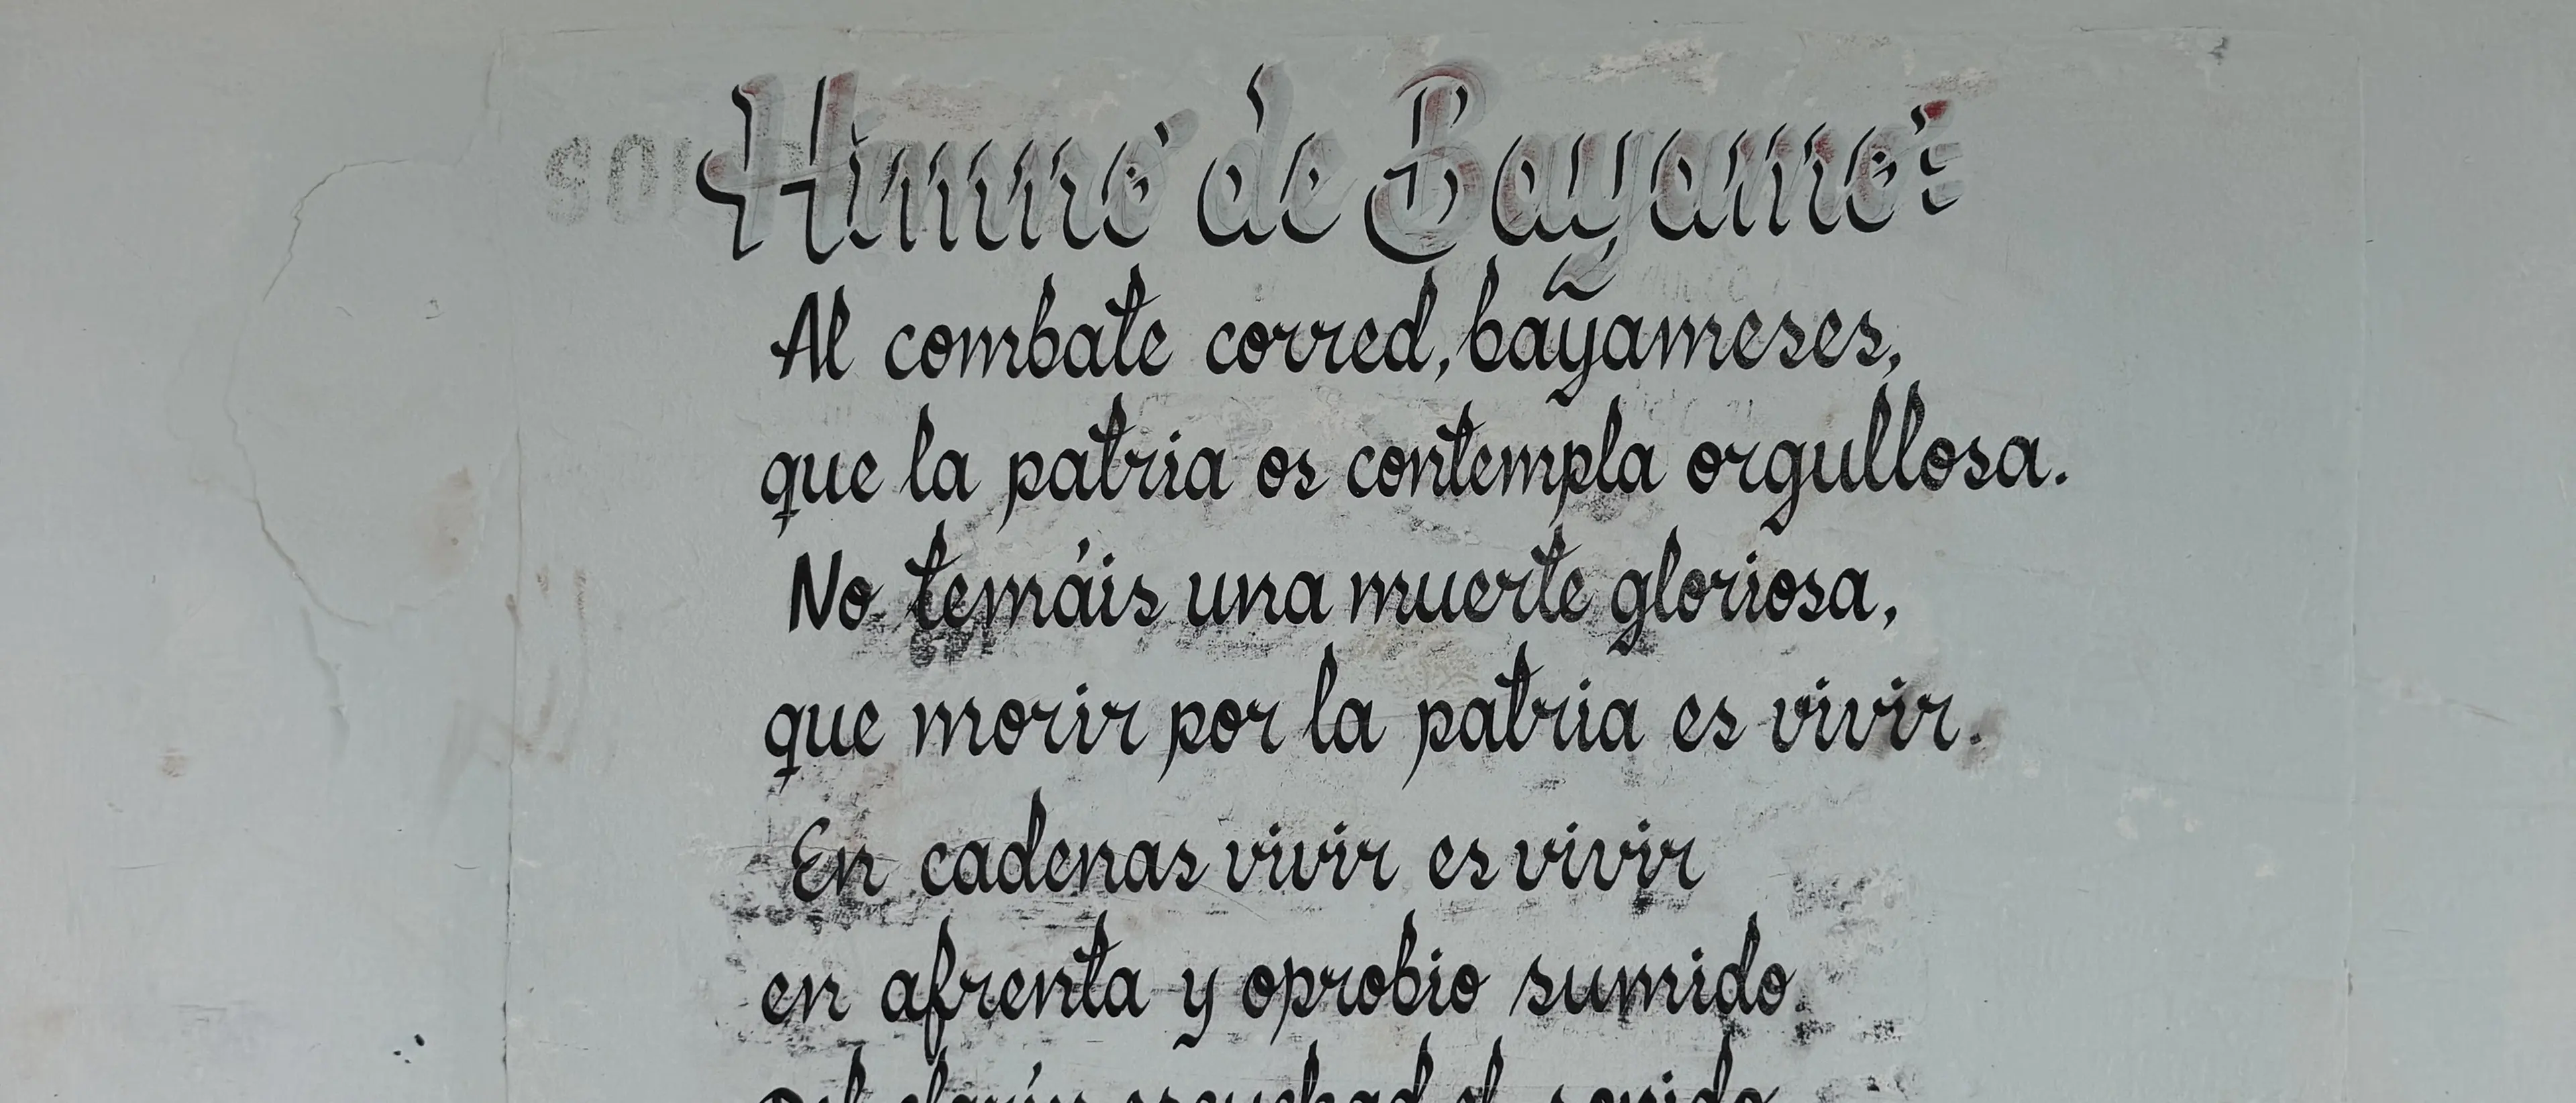 Himno de Bayamo:
Al combate corred, bayameses,
que la patria os contempla orgullosa.
No temáis una muerte gloriosa,
que morir por la patria es vivir.
En cadenas vivir es vivir
en afrenta y oprobio sumido.
Del clarín escuchad el sonido